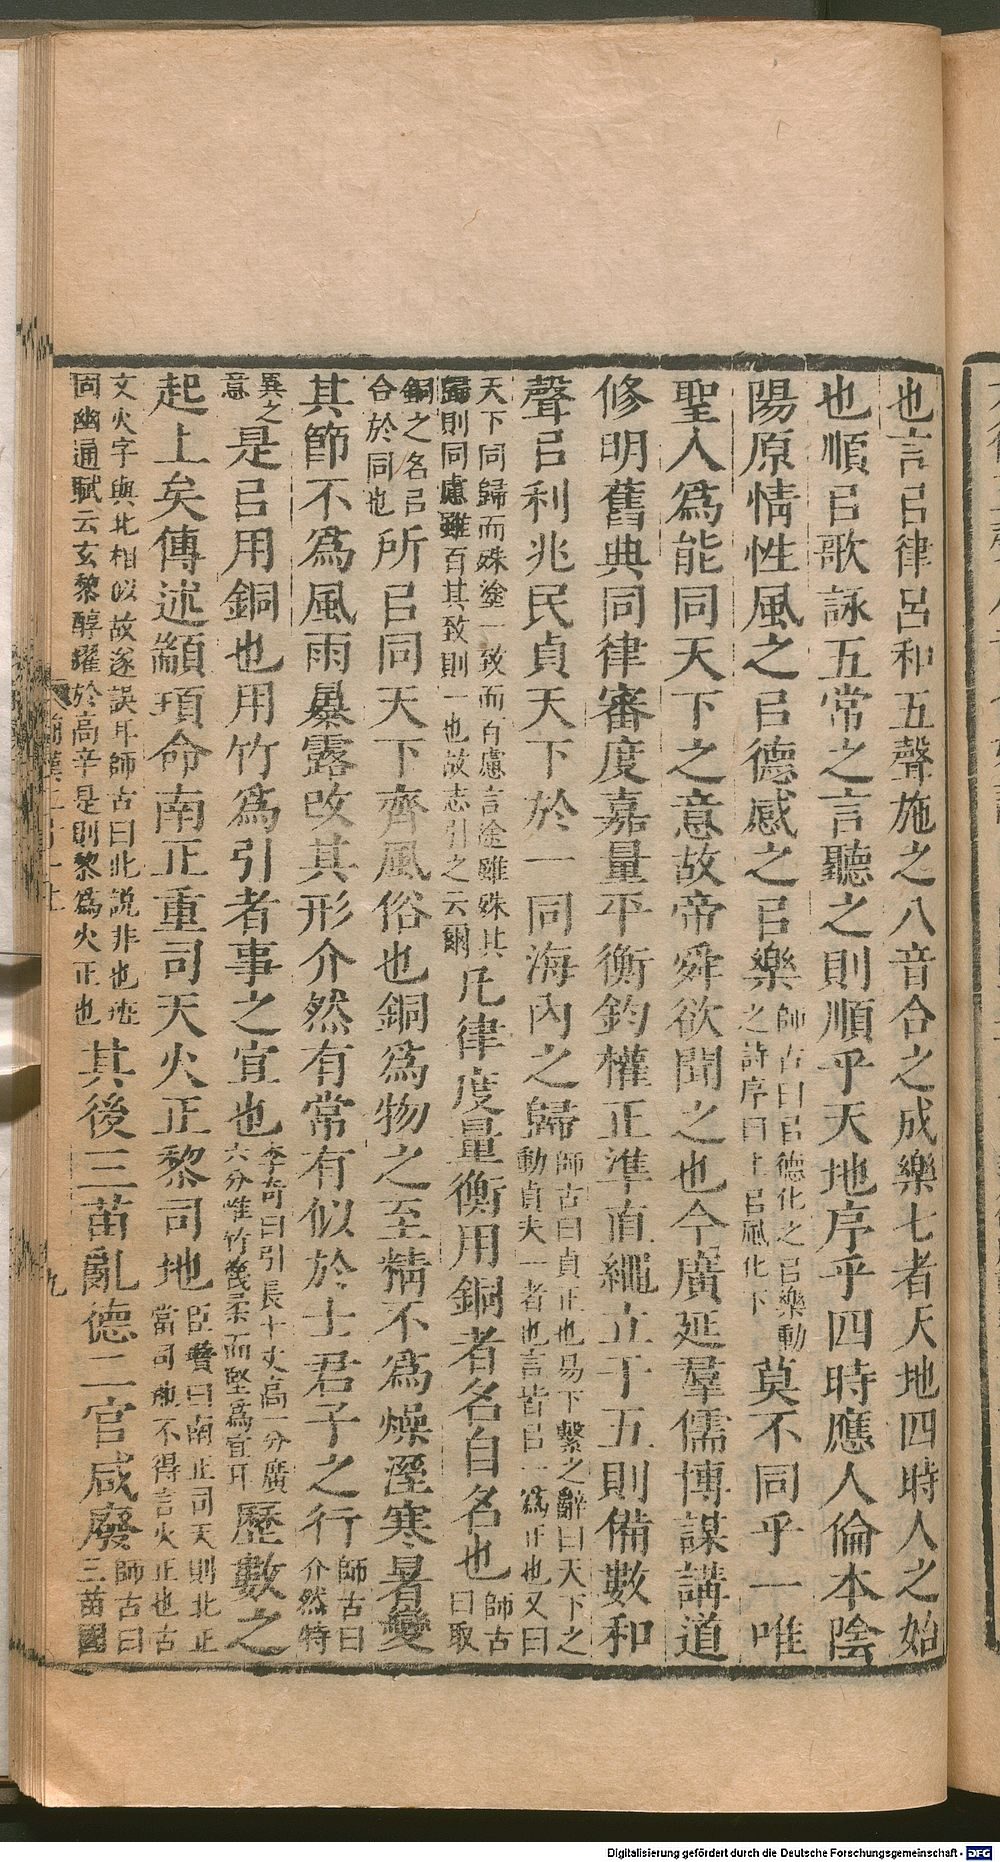 也言㠯律呂和五聲施之八音合之成樂七者天地四時人之始
也順㠯歌詠五常之言聽之則順乎天地序乎四時應人倫本陰
陽原情性風之㠯德感之㠯樂師古曰㠯德化之㠯樂動之詩序曰上㠯風化下莫不同乎一唯
聖人爲能同天下之意故帝舜欲聞之也今廣延羣儒博謀講道
修明舊典同律審度嘉量平衡鈞權正準直繩立于五則備數和
聲㠯利兆民貞天下於一同海內之歸師古曰貞正也易下繫之辭曰天下之動貞夫一者也言皆㠯一爲正也又曰
天下同歸而殊塗一致而百慮言途雖殊其歸則同慮雖百其致則一也故志引之云爾凡律度量衡用銅者名自名也師古曰取
銅之名㠯合於同也所㠯同天下齊風俗也銅爲物之至精不爲燥溼寒暑變
其節不爲風雨暴露改其形介然有常有似於士君子之行師古曰介然特
異之意是㠯用銅也用竹爲引者事之宜也李奇曰引長十丈高一分廣六分唯竹篾柔而堅爲宜耳歷數之
起上矣傳述顓頊命南正重司天火正黎司地臣瓚曰南正司天則北正當司地不得言火正也古
文火字與北相似故遂誤耳師古曰此說非也班固幽通賦云玄黎醇耀於高辛是則黎爲火正也其後三苗亂德二官咸廢師古曰三苗國
前漢二十一上
九
Digitalisierung gefördert durch die Deutsche Forschungsgemeinschaft - DFG